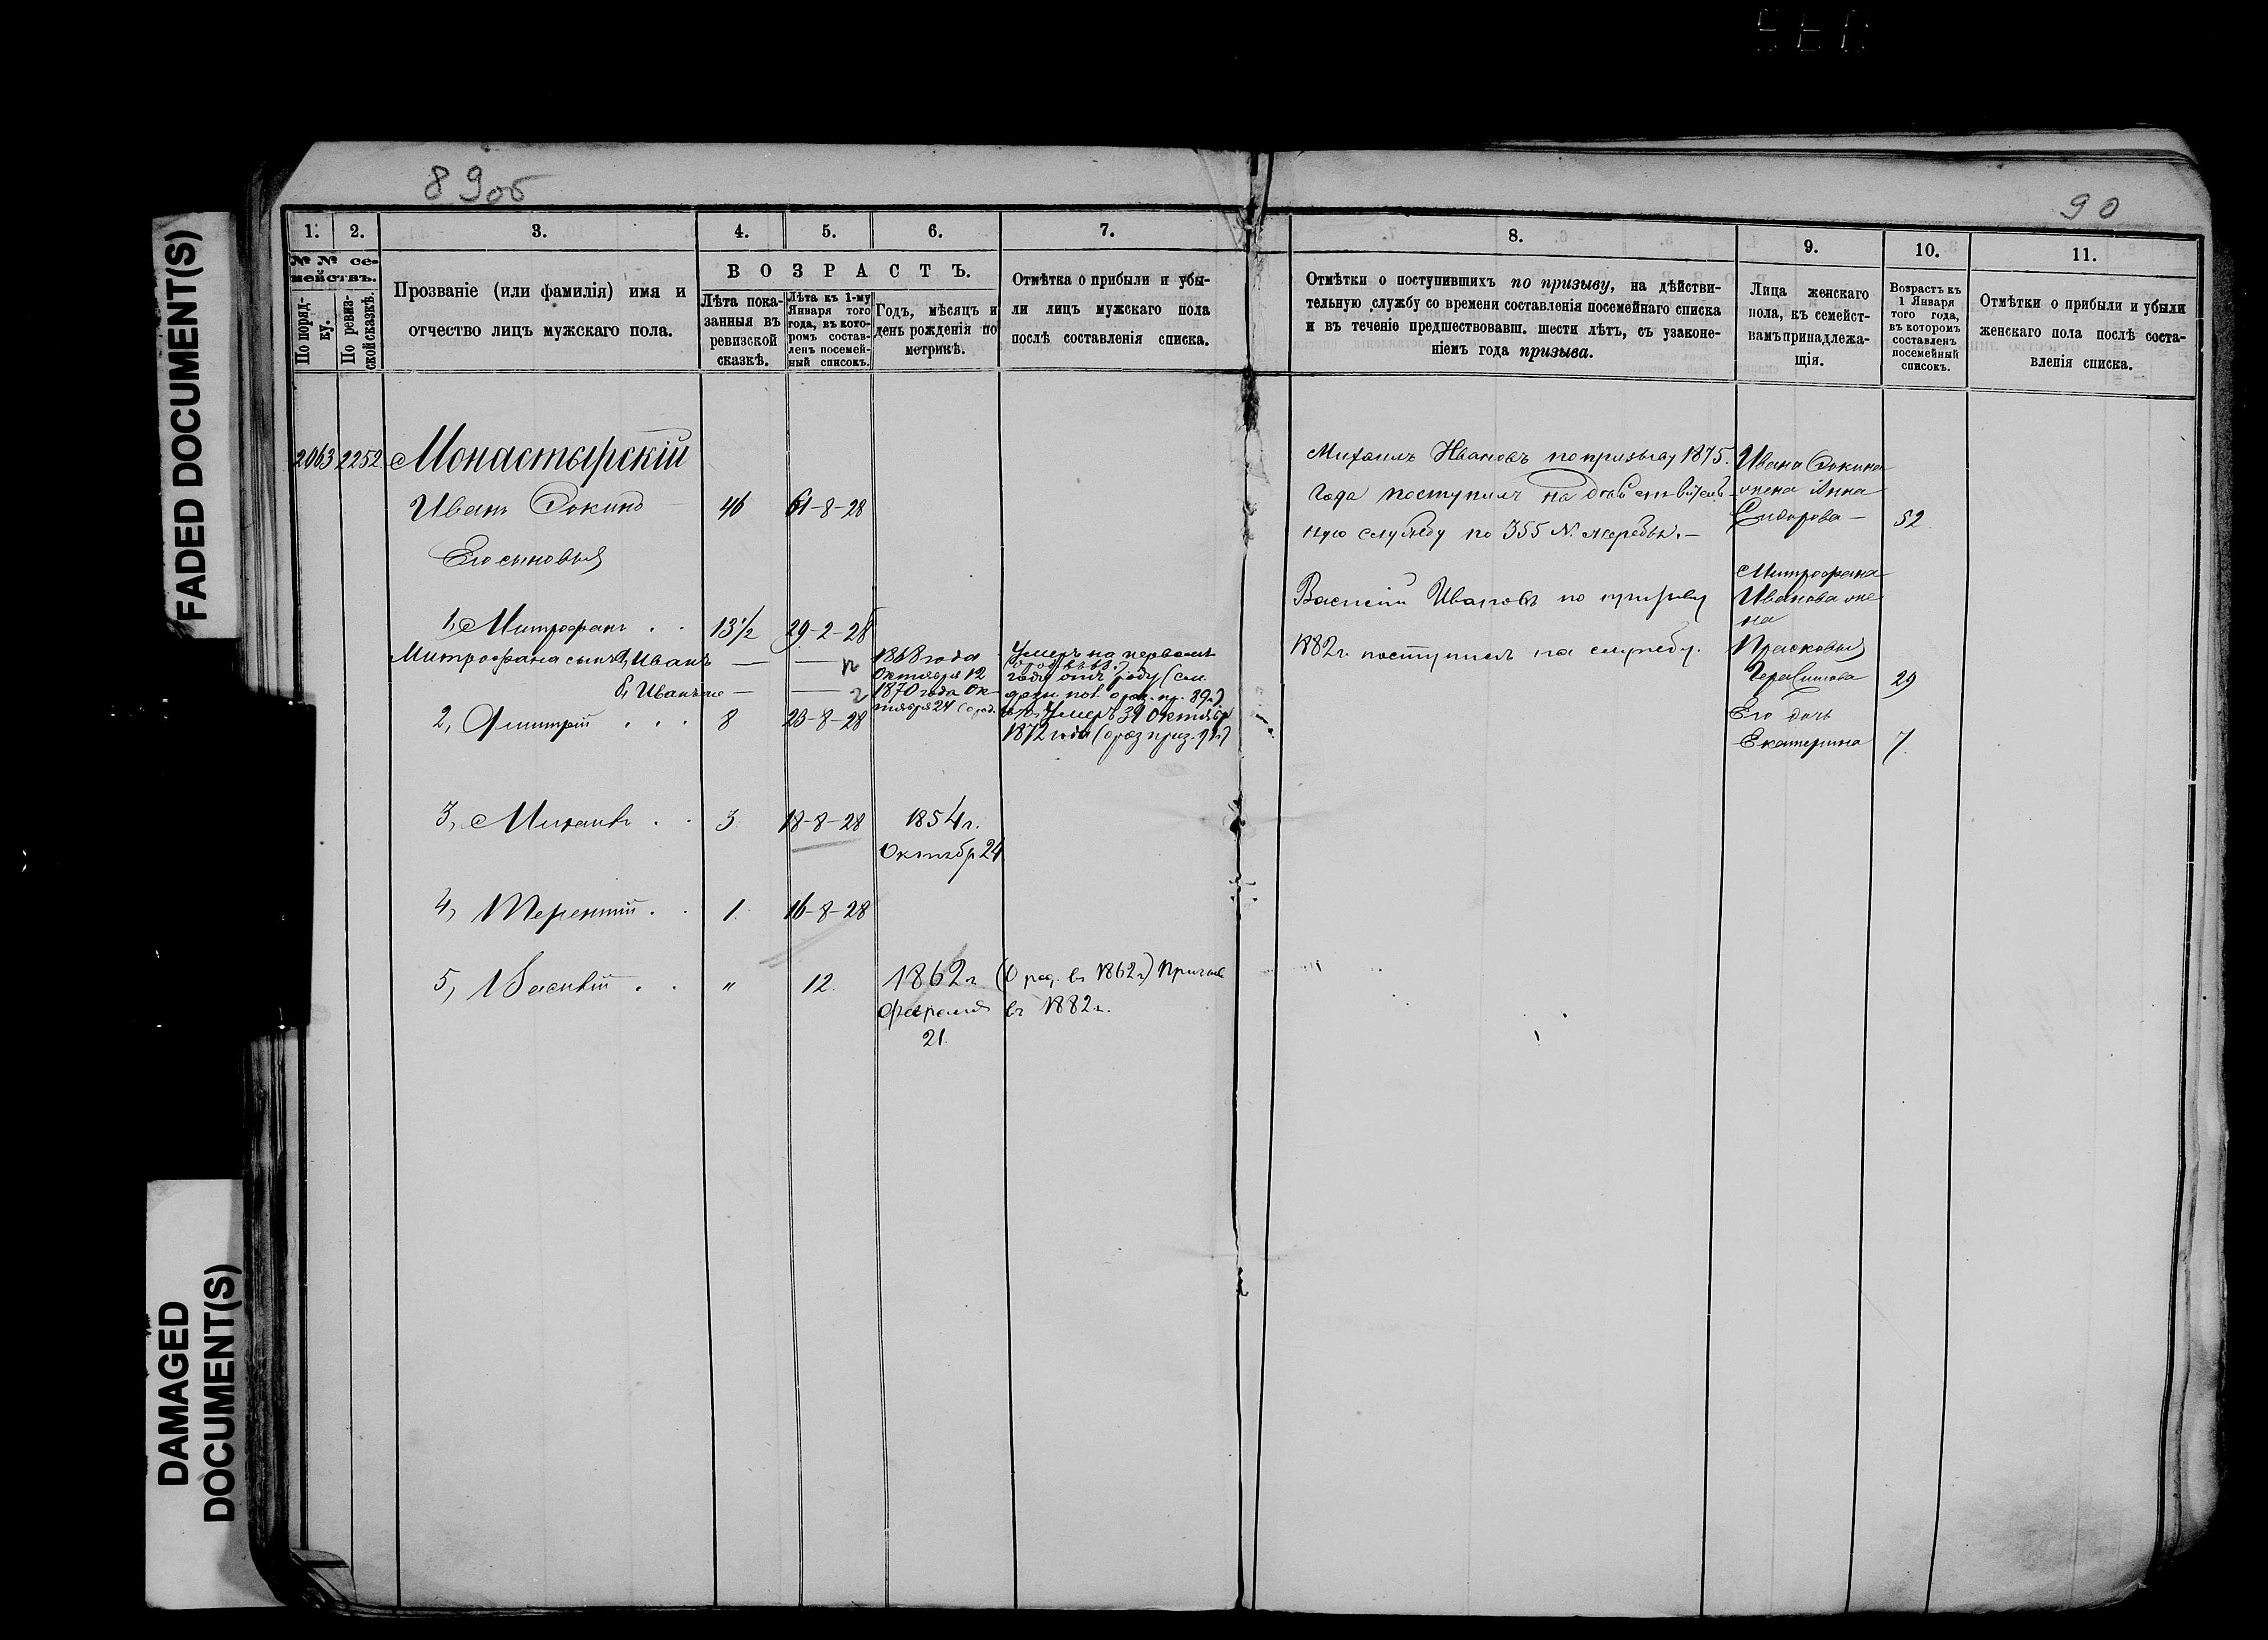 FADED DOCUMENT(S)
DAMAGED
DOCUMENT(S)
89об
90
1.
2.
3.
4.
5.
6.
7.
8.
9.
10.
11.
№ № се-
мействъ.
По поряд-
ку.
По ревиз-
ской сказкѣ.
Прозваніе (или фамилія) имя и
отчество лицъ мужскаго пола.
ВОЗРАСТЪ.
Лѣта пока-
занныя въ
ревизской
сказкѣ.
Лѣта къ 1-му
Января того
года, въ кото-
ромъ состав-
ленъ посемей-
ный списокъ.
Годъ, мѣсяцъ и
день рожденія по
метрикѣ.
Отмѣтка о прибыли и убы-
ли лицъ мужскаго пола
послѣ составленія списка.
Отмѣтки о поступившихъ по призыву, на дѣйстви-
тельную службу со времени составленія посемейнаго списка
и въ теченіе предшествовавш. шести лѣтъ, съ узаконе-
ніемъ года призыва.
Лица женскаго
пола, къ семейст-
вамъ принадлежа-
щія.
Возрастъ къ
1 Января
того года,
въ которомъ
составленъ
посемейный
списокъ.
Отмѣтки о прибыли и убыли
женскаго пола послѣ соста-
вленія списка.
2063 2252 Монастырскій
Иванъ 46 61-8-28
Его сыновья
1, Митрофанъ . . 13½ 29-2-28
Митрофана сынъ Иванъ — — 1868 года
Октября 12
Умеръ на первомъ
году
Иванъ — — 1870 года Ок-
тября 24
2, Дмитрій . . . 8 23-8-28
Умеръ Октября
1872 года
3, Михаилъ . . 3 18-8-28 1854 г.
Октябр 24
4, Терентій . . 1. 16-8-28
5, Василій . . " 12. 1862 г. (О род. въ 1862 г.) Призыв
Февраля въ 1882 г.
21.
Михаилъ Ивановъ по призыву 1875
года поступилъ на дѣйствитель-
ную службу по 355 № жеребья. —
Василій Ивановъ по призыву
1882 г. поступилъ на службу.
Ивана
жена Анна
Сидорова — 52
Митрофана
Иванова же
на
Прасковья
Герасимова 29
Его дочь
Екатерина 7.